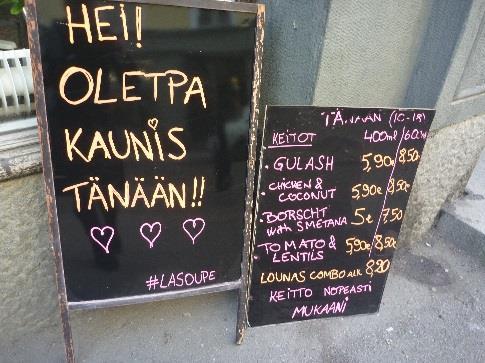 HEI!
OLETPA
KAUNIS
TÄNÄÄN!!
#LASOUPE
TÄNÄÄN (10-18)
KEITOT 400ml/600ml
• GULASH 5,90€ 8,50€
• CHICKEN & COCONUT 5,90€ 8,50€
• BORSCHT with SMETANA 5€ 7,50
• TOMATO & LENTILS 5,90€ 8,50€
LOUNAS COMBO ALK. 8,90
KEITTO NOPEASTI
MUKAANI